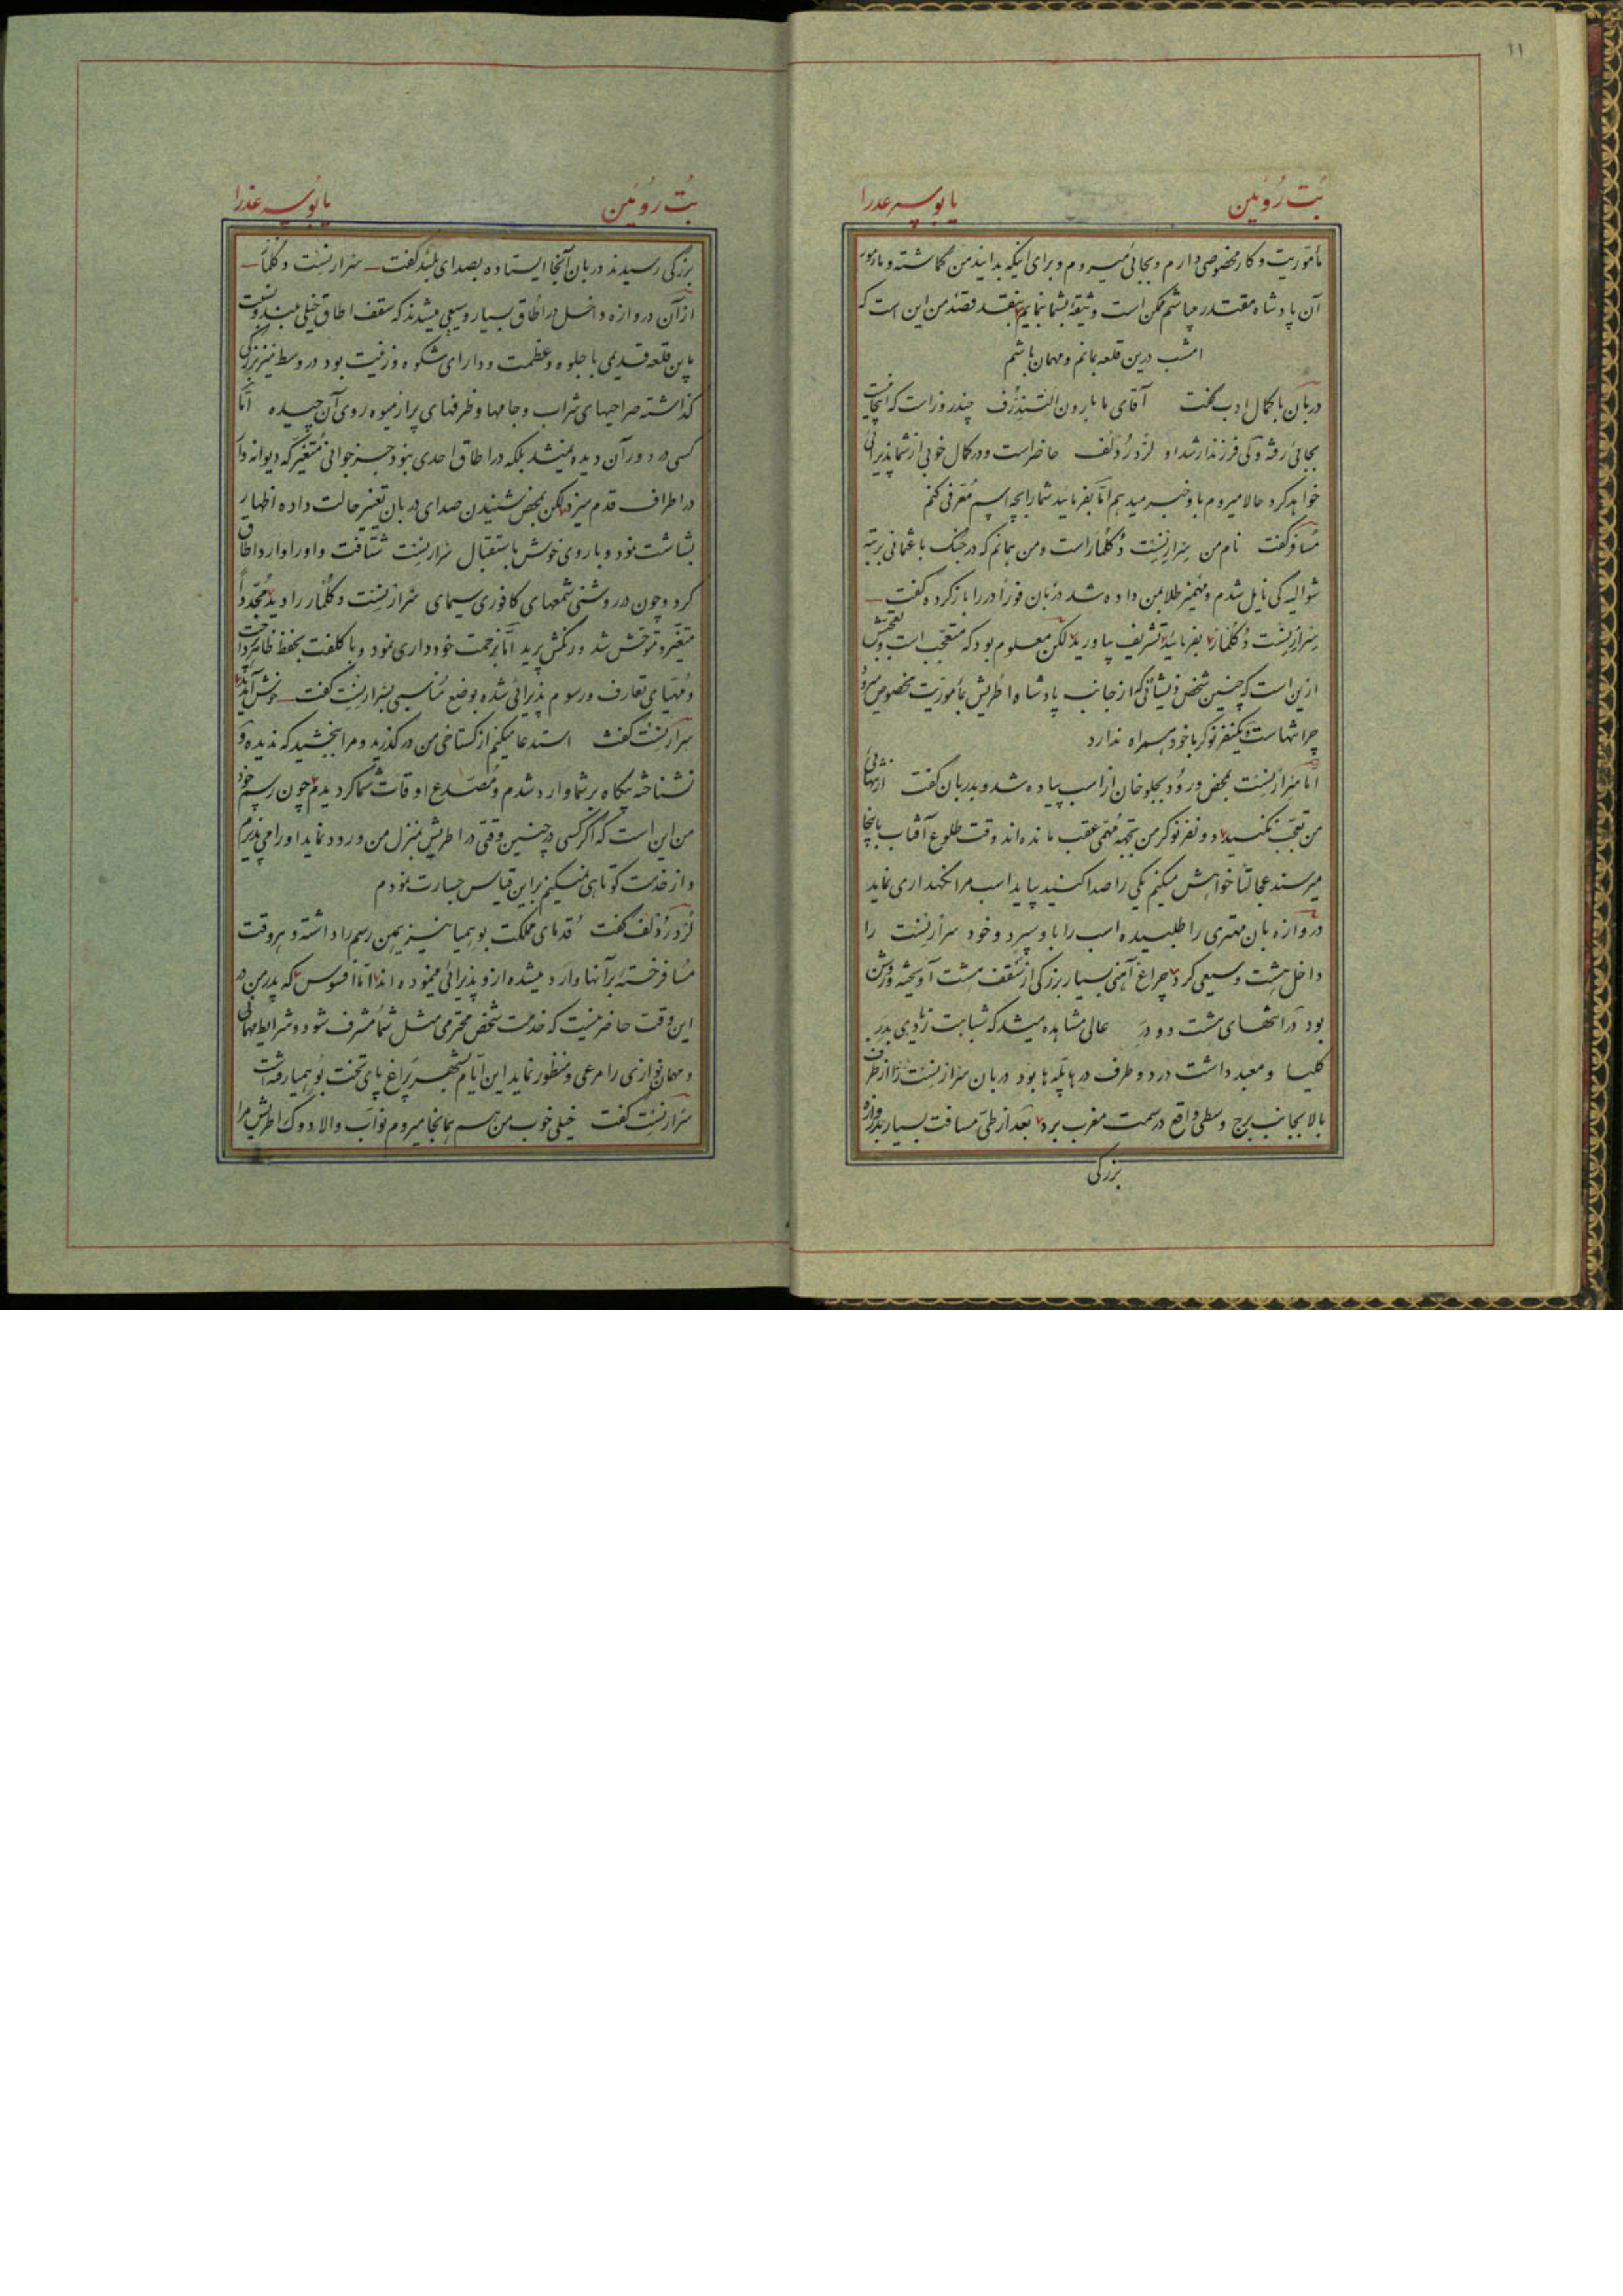 ۱۱
بُت رُوئین یا بوسه عذرا
مأموریت و کار مخصوصی دارم و بجائی میروم و برای اینکه بدانید من گماشته و مأمور
آن پادشاه مقتدر میباشم ممکن است وثیقهٔ بشما بنمایم بنقد قصد من این است که
امشب درین قلعه بمانم و مهمان باشم
دربان با کمال ادب گفت آقای ما بارون چند روز است که اینجا نیست
بجائی رفته ولی فرزند ارشد او لرد رُدلف حاضر است و در کمال خوبی از شما پذیرائی
خواهد کرد حالا میروم باو خبر میدهم امّا بفرمائید شما را بچه اسم مُعرّفی کنم
مسافر گفت نام من سِرارنِست دُکلمار است و من همانم که در جنگ با عثمانی برتبهٔ
شوالیه کی نایل شدم و مهمیز طلا بمن داده شد دربان فوراً در را باز کرده گفت
سِرارنِست دُکلمار بفرمائید تشریف بیاورید لکن معلوم بود که متعجب است و تعجبش
ازین است که چنین شخص ذیشانی که از جانب پادشاه اطریش بمأموریت مخصوص میرود
چرا تنهاست و یکنفر نوکر با خود همراه ندارد
امّا سِرارنِست بمحض ورود بجلوخان از اسب پیاده شد و بدربان گفت از تنهائی
من تعجّب نکنید دو نفر نوکر من بجهة مُهمّی عقب مانده‌اند وقت طلوع آفتاب باینجا
میرسند عجالتاً خواهش میکنم یکی را صدا کنید بیاید اسب مرا نگهداری نماید
دروازه بان مهتری را طلبیده اسب را باو سپرد و خود سرارنست را
داخل هشت وسیعی کرد چراغ آهنی بسیار بزرگی از سقف هشت آویخته و روشن
بود در انتهای هشت دو در عالی مشاهده میشد که شباهت زیادی بدرب
کلیسا و معبد داشت در دو طرف درها پلّه‌ها بود دربان سرارنست را از طرف
بالا بجانب برج وسطی واقع در سمت مغرب برد بعد از طی مسافت بسیار بدروازه
بزرگی
بُت روئین یا بوسه عذرا
بزرگی رسیدند دربان آنجا ایستاده بصدای بلند گفت سرارنست دکلمار
از آن دروازه داخل در اطاق بسیار وسیعی میشدند که سقف اطاق خیلی بلند و نسبت
باین قلعه قدیمی با جلوه و عظمت و دارای شکوه و زینت بود در وسط میز بزرگی
گذاشته صراحیهای شراب و جامها و ظرفهای پر از میوه روی آن چیده امّا
کسی در دور آن دیده نمیشد بلکه در اطاق احدی نبود جز جوانی متغیّر که دیوانه‌وار
در اطراف قدم میزد لکن بمحض شنیدن صدای دربان تغییر حالت داده اظهار
بشاشت نمود و با روی خوش باستقبال سرارنست شتافت و او را وارد اطاق
کرد و چون در روشنی شمعهای کافوری سیمای سرارنست دکلمار را دید مجدداً
متغیّر و متوحش شد و رنگش پرید امّا بزحمت خودداری نمود و با کلفت بحفظ ظاهر پرداخت
و مُهیّای تعارف و رسوم پذیرائی شده بوضع مناسبی بسرارنست گفت خوش آمدید
سرارنست گفت استدعا میکنم از گستاخی من در گذرید و مرا ببخشید که ندیده و
نشناخته بیگاه بر شما وارد شدم و مُصدّع اوقات شما گردیدم چون رسم خود
من این است که اگر کسی در چنین وقتی در اطریش بمنزل من ورود نماید او را می‌پذیرم
و از خدمت کوتاهی نمیکنم بر این قیاس جسارت نمودم
لُرد رُدلف گفت قدمای مملکت بوهمیا نیز همین رسم را داشته و هر وقت
مسافر خسته بر آنها وارد میشده از و پذیرائی مینموده‌اند امّا افسوس که پدر من در
این وقت حاضر نیست که خدمت شخص محترمی مثل شما مشرف شود و شرایط مهمانی
و مهمان نوازی را مرعی و منظور نماید این ایّام بشهر پراغ پای تخت بوهمیا رفته است
سرارنست گفت خیلی خوب من هم بهمانجا میروم نواب والا دوک اطریش مرا